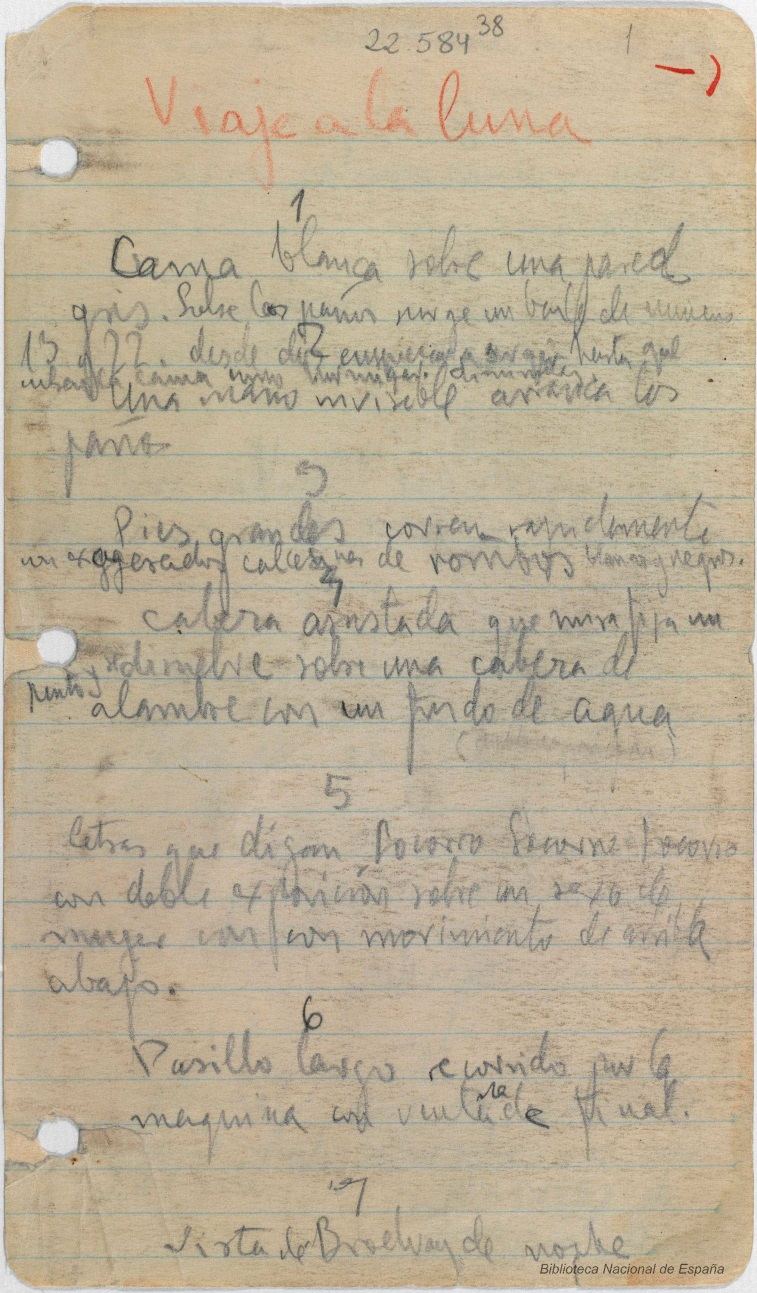 22.584 38
1
Viaje a la luna
1
Cama blanca sobre una pared
gris. Sobre los paños surge un baile de numeros
13 y 22. desde dos empiezan a surgir hasta que
cama como hormigas diminutas.
2
Una mano invisible arranca los
paños
3
Pies grandes corren rapidamente
exagerados calcetines de rombos blancos y negros.
4
Cabeza asustada que mira fija un
punto y se disuelve sobre una cabeza de
alambre con un fondo de agua
5
Letras que digan Socorro Socorro Socorro
con doble exposición sobre un sexo de
muger con movimiento de arriba
abajo.
6
Pasillo largo recorrido por la
maquina con ventana de final.
7
Vista de Broelway de noche
Biblioteca Nacional de España